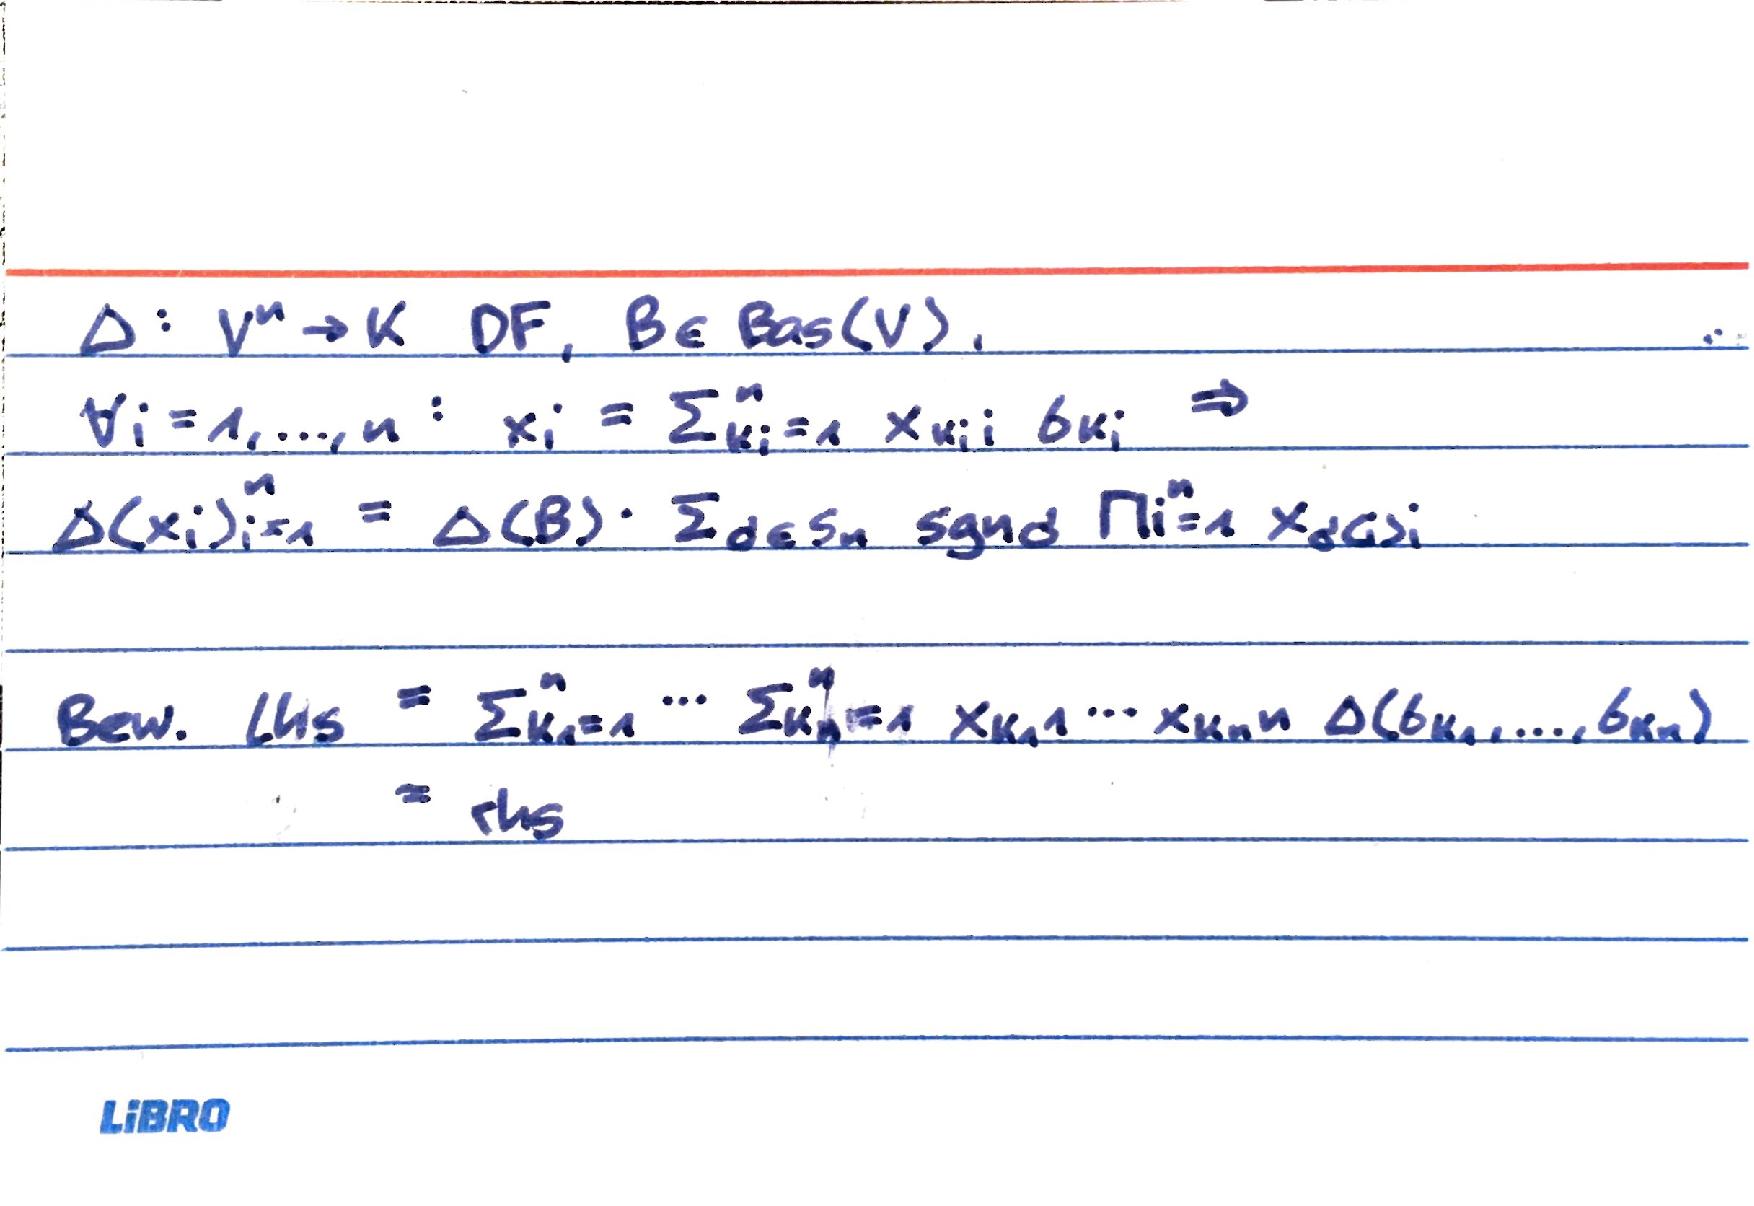 Δ: Vⁿ → K DF, B ∈ Bas(V).
∀i = 1, ..., n : xᵢ = Σ_{kᵢ=1}^n x_{kᵢ i} b_{kᵢ} ⇒
Δ(xᵢ)_{i=1}^n = Δ(B) · Σ_{σ∈Sₙ} sgn σ Π_{i=1}^n x_{σ(i)i}
Bew. lhs = Σ_{k₁=1}^n ... Σ_{kₙ=1}^n x_{k₁1} ... x_{kₙn} Δ(b_{k₁}, ..., b_{kₙ})
= rhs
LiBRO